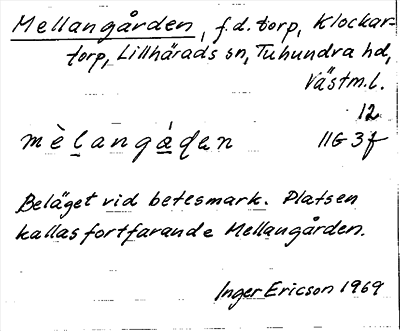 Mellangården, f.d. torp, Klockar-
torp, Lillhärads sn, Tuhundra hd,
Västm.l.
12
mèlangá̱ḍen 11G3f
Beläget vid betesmark. Platsen
kallas fortfarande Mellangården.
Inger Ericson 1969